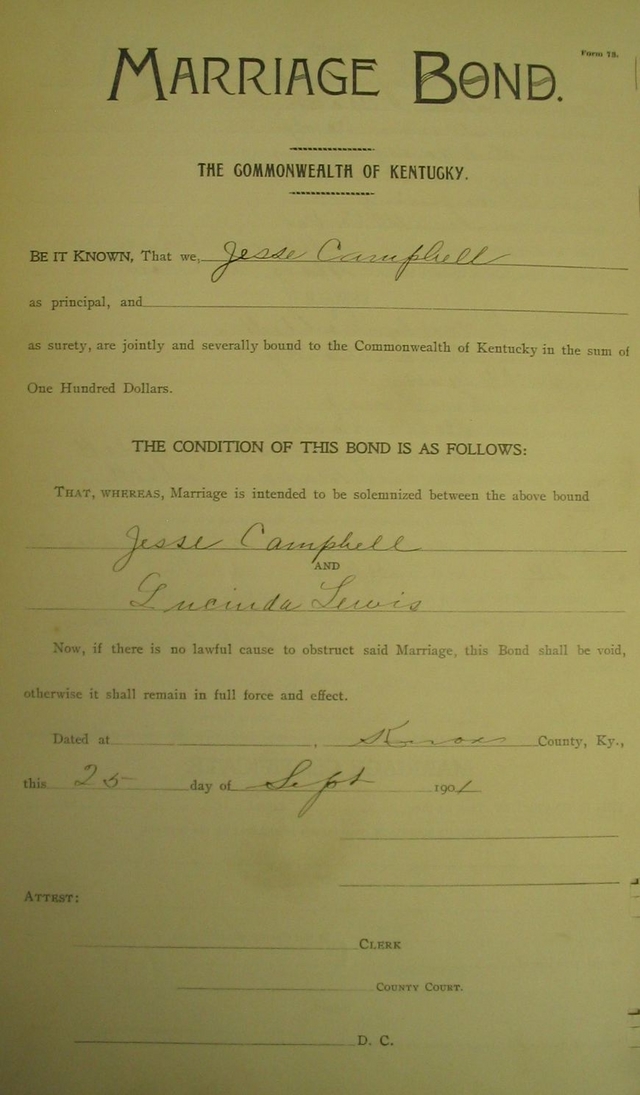 Form 78.
MARRIAGE BOND.
THE COMMONWEALTH OF KENTUCKY.
BE IT KNOWN, That we, Jesse Campbell
as principal, and
as surety, are jointly and severally bound to the Commonwealth of Kentucky in the sum of
One Hundred Dollars.
THE CONDITION OF THIS BOND IS AS FOLLOWS:
THAT, WHEREAS, Marriage is intended to be solemnized between the above bound
Jesse Campbell
AND
Lucinda Lewis
Now, if there is no lawful cause to obstruct said Marriage, this Bond shall be void,
otherwise it shall remain in full force and effect.
Dated at , Knox County, Ky.,
this 25 day of Sept 1901
ATTEST:
CLERK
COUNTY COURT.
D. C.